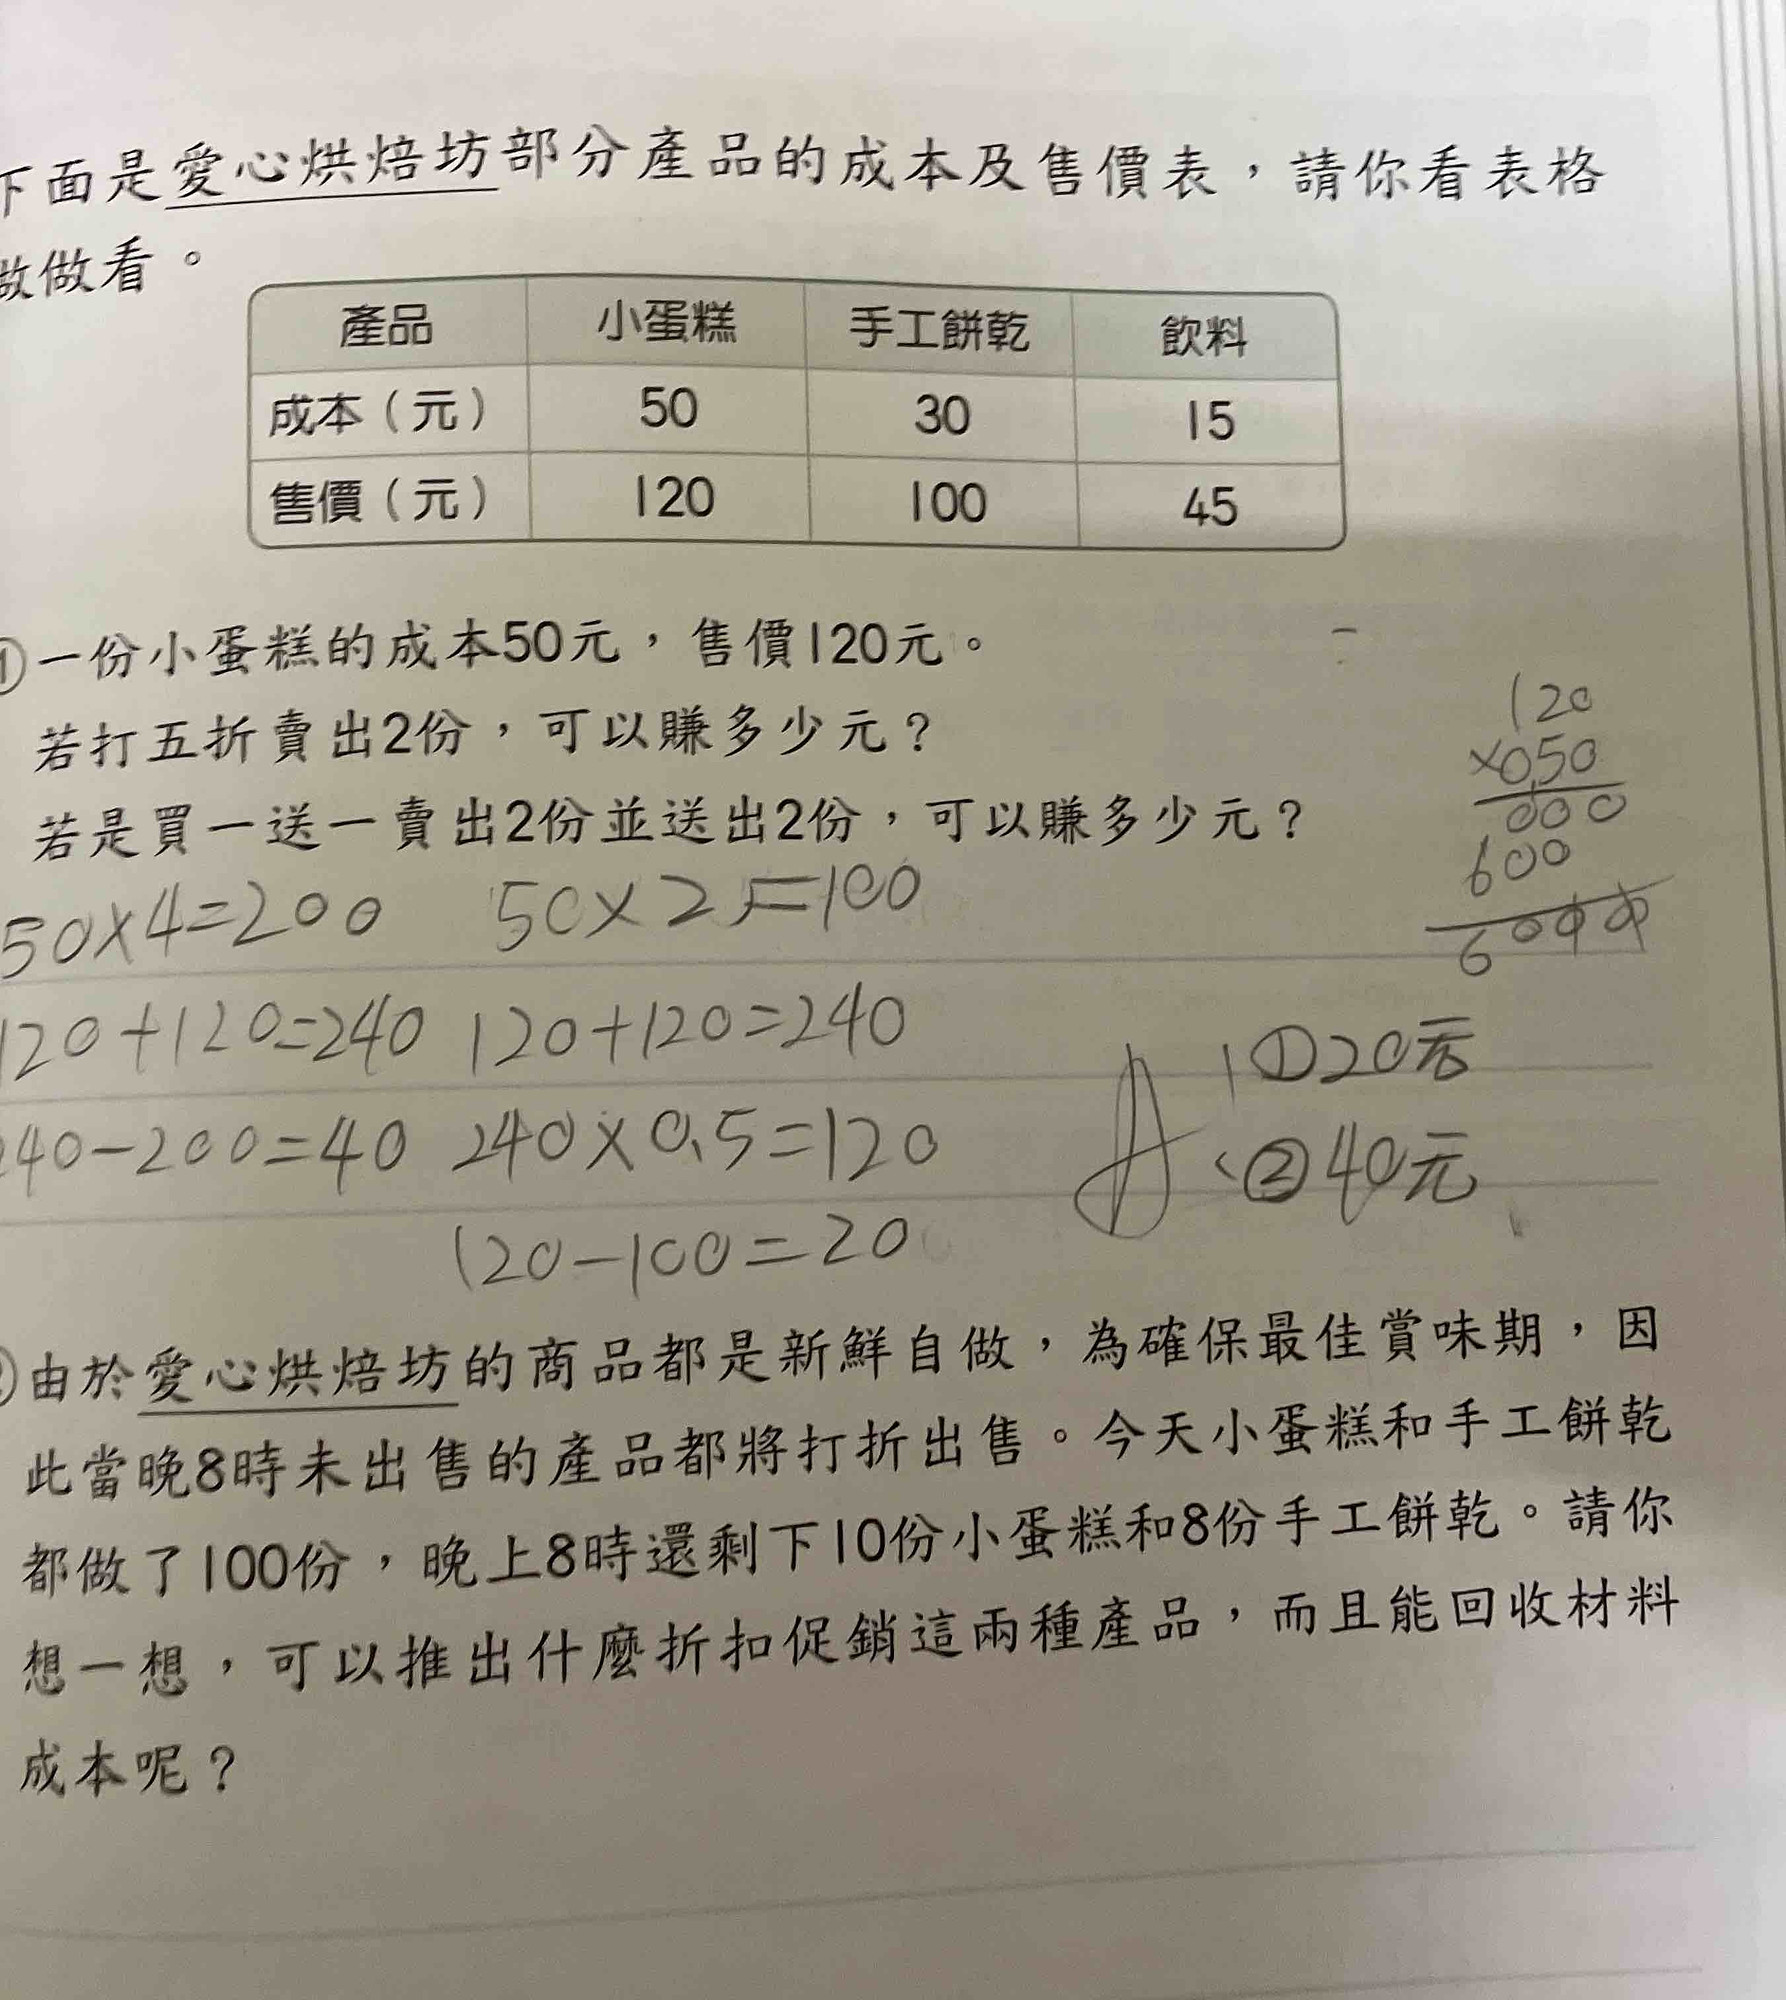 下面是愛心烘焙坊部分產品的成本及售價表，請你看表格
做做看。
產品 小蛋糕 手工餅乾 飲料
成本（元） 50 30 15
售價（元） 120 100 45
①一份小蛋糕的成本50元，售價120元。
若打五折賣出2份，可以賺多少元？
若是買一送一賣出2份並送出2份，可以賺多少元？
120
×050
000
600
6000
50×4=200 50×2=100
120+120=240 120+120=240
240-200=40 240×0.5=120
120-100=20
A：①20元
②40元
②由於愛心烘焙坊的商品都是新鮮自做，為確保最佳賞味期，因
此當晚8時未出售的產品都將打折出售。今天小蛋糕和手工餅乾
都做了100份，晚上8時還剩下10份小蛋糕和8份手工餅乾。請你
想一想，可以推出什麼折扣促銷這兩種產品，而且能回收材料
成本呢？